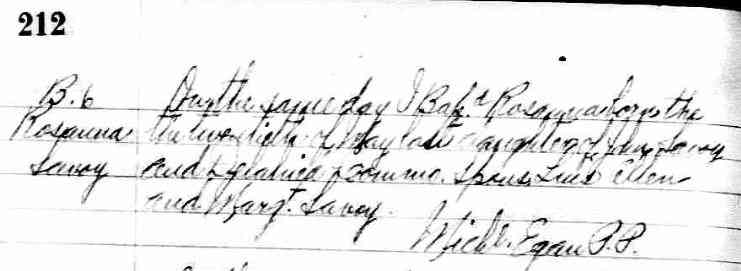 212
B. 6 On the same day I Bapt.d Rosanna born the
Rosanna the twentieth of May last daughter of John Savoy
Savoy and spons. Ellen
and Margt. Savoy.
Michl. Egan P.P.